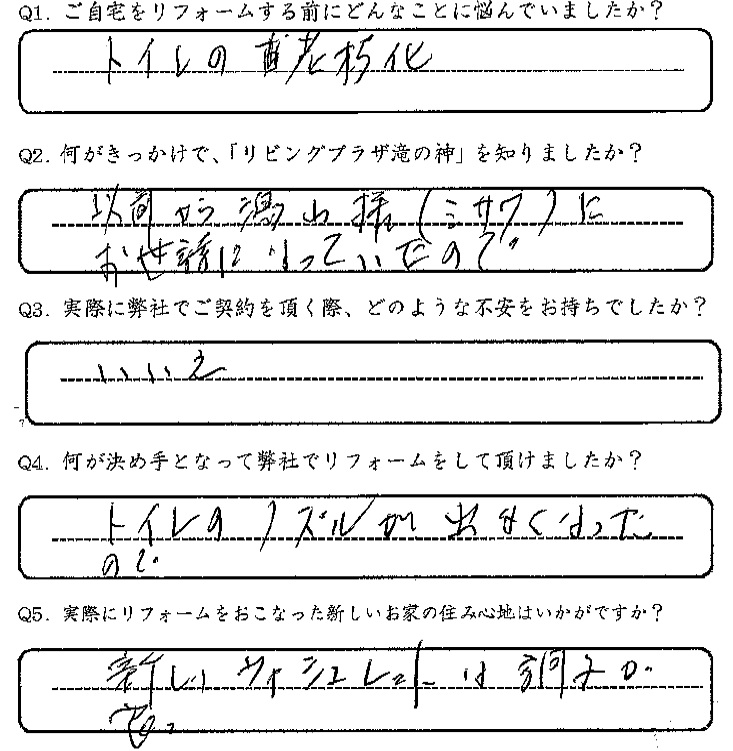 Q1. ご自宅をリフォームする前にどんなことに悩んでいましたか？
トイレの 老朽化
Q2. 何がきっかけで、「リビングプラザ滝の神」を知りましたか？
以前から 湯山様(ミサワ)に
お世話になっていたので
Q3. 実際に弊社でご契約を頂く際、どのような不安をお持ちでしたか？
いいえ
Q4. 何が決め手となって弊社でリフォームをして頂けましたか？
トイレのノズルが出なくなった
ので
Q5. 実際にリフォームをおこなった新しいお家の住み心地はいかがですか？
新しいウォシュレットは調子が